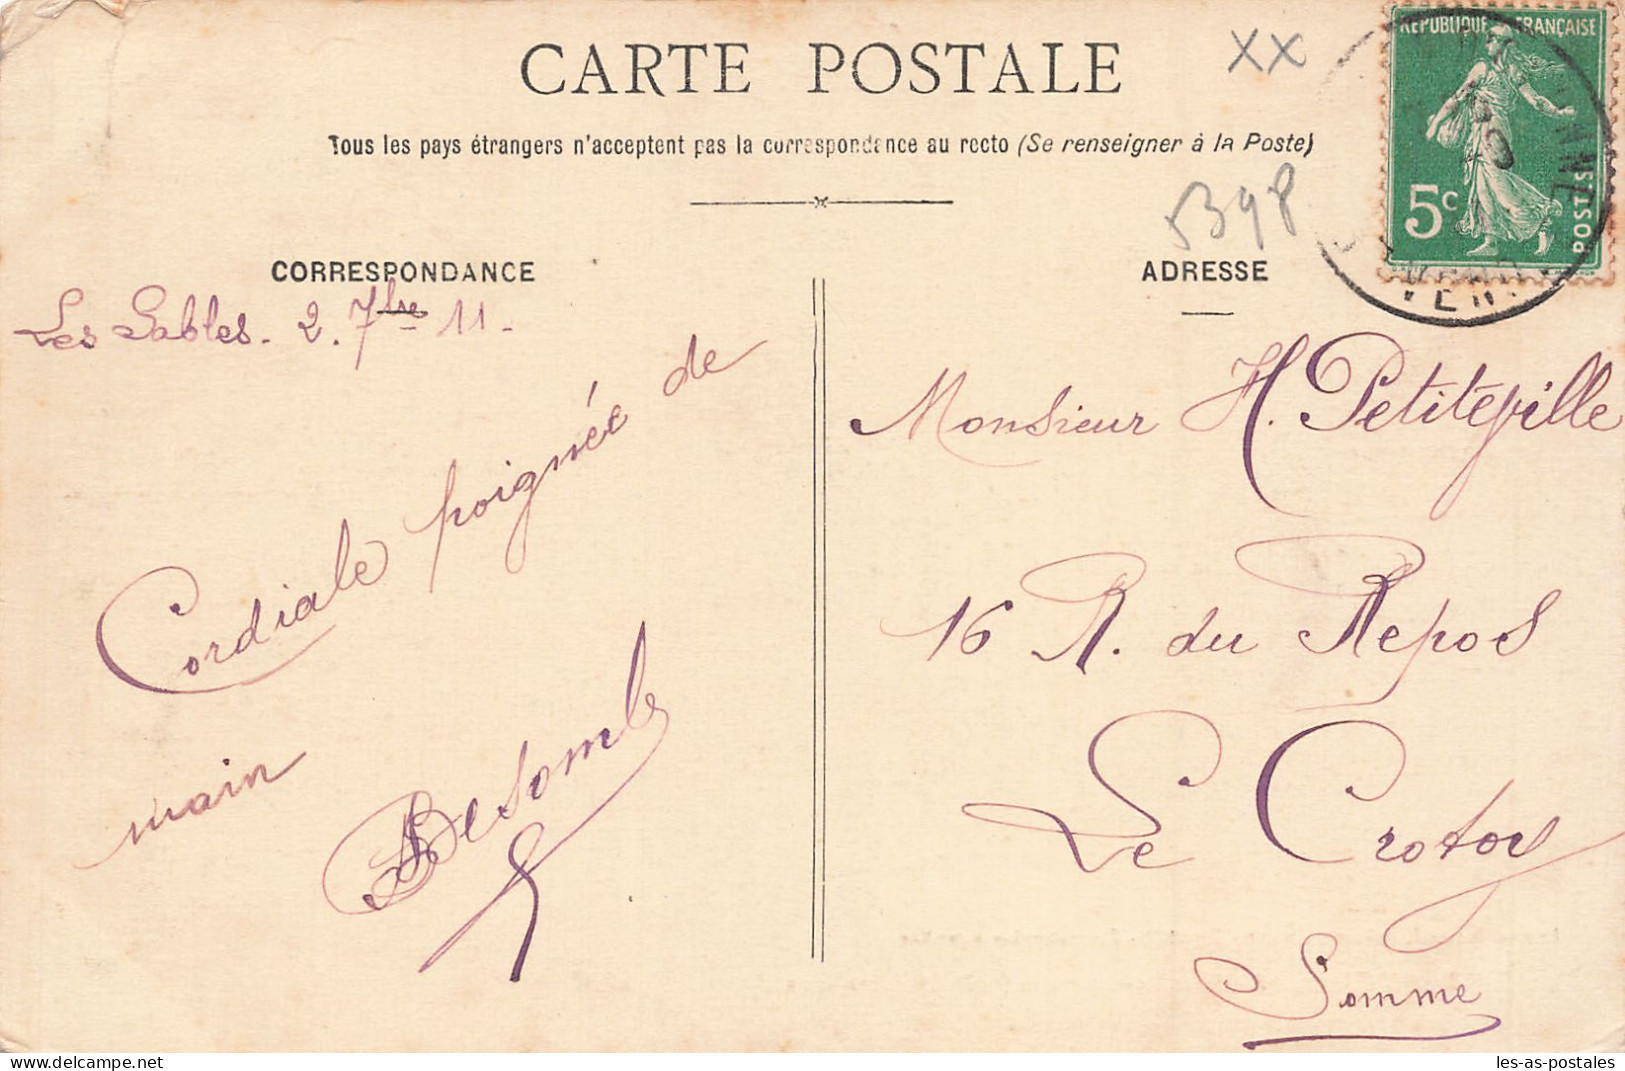 CARTE POSTALE
Tous les pays étrangers n'acceptent pas la correspondance au recto (Se renseigner à la Poste)
XX
5398
RÉPUBLIQUE FRANÇAISE
5c
POSTES
CORRESPONDANCE
Les Sables. 2. 7bre 11.
Cordiale poignée de
main
ADRESSE
Monsieur H. Petitepille
16 R. du Repos
Le Crotoy
Somme
delcampe.net
les-as-postales